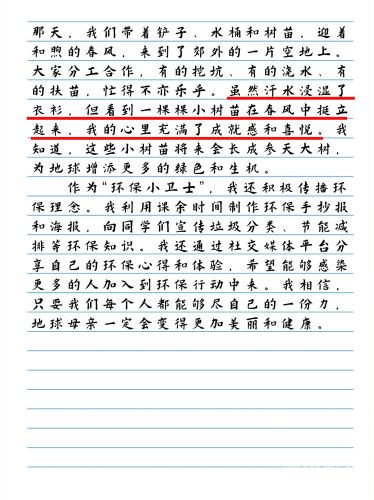 那天，我们带着铲子、水桶和树苗，迎着
和煦的春风，来到了郊外的一片空地上。
大家分工合作，有的挖坑、有的浇水、有
的扶苗，忙得不亦乐乎。虽然汗水浸湿了
衣衫，但看到一棵棵小树苗在春风中挺立
起来，我的心里充满了成就感和喜悦。我
知道，这些小树苗将来会长成参天大树，
为地球增添更多的绿色和生机。
作为“环保小卫士”，我还积极传播环
保理念。我利用课余时间制作环保手抄报
和海报，向同学们宣传垃圾分类、节能减
排等环保知识。我还通过社交媒体平台分
享自己的环保心得和体验，希望能够感染
更多的人加入到环保行动中来。我相信，
只要我们每个人都能够尽自己的一份力，
地球母亲一定会变得更加美丽和健康。